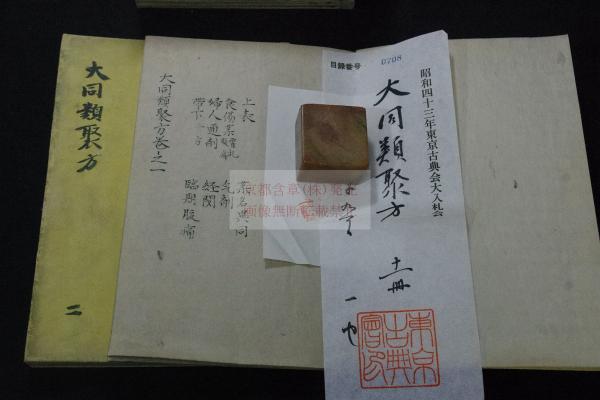 目録番号 0708
昭和四十三年東京古典会大入札会
大同類聚方
十一冊
一也
東京古典會印
上表
大同類聚方巻之一
婦人通剤
帯下
経閉
臨期腹痛
大同類聚方
二
京都含章(株)発行
画像無断転載禁止